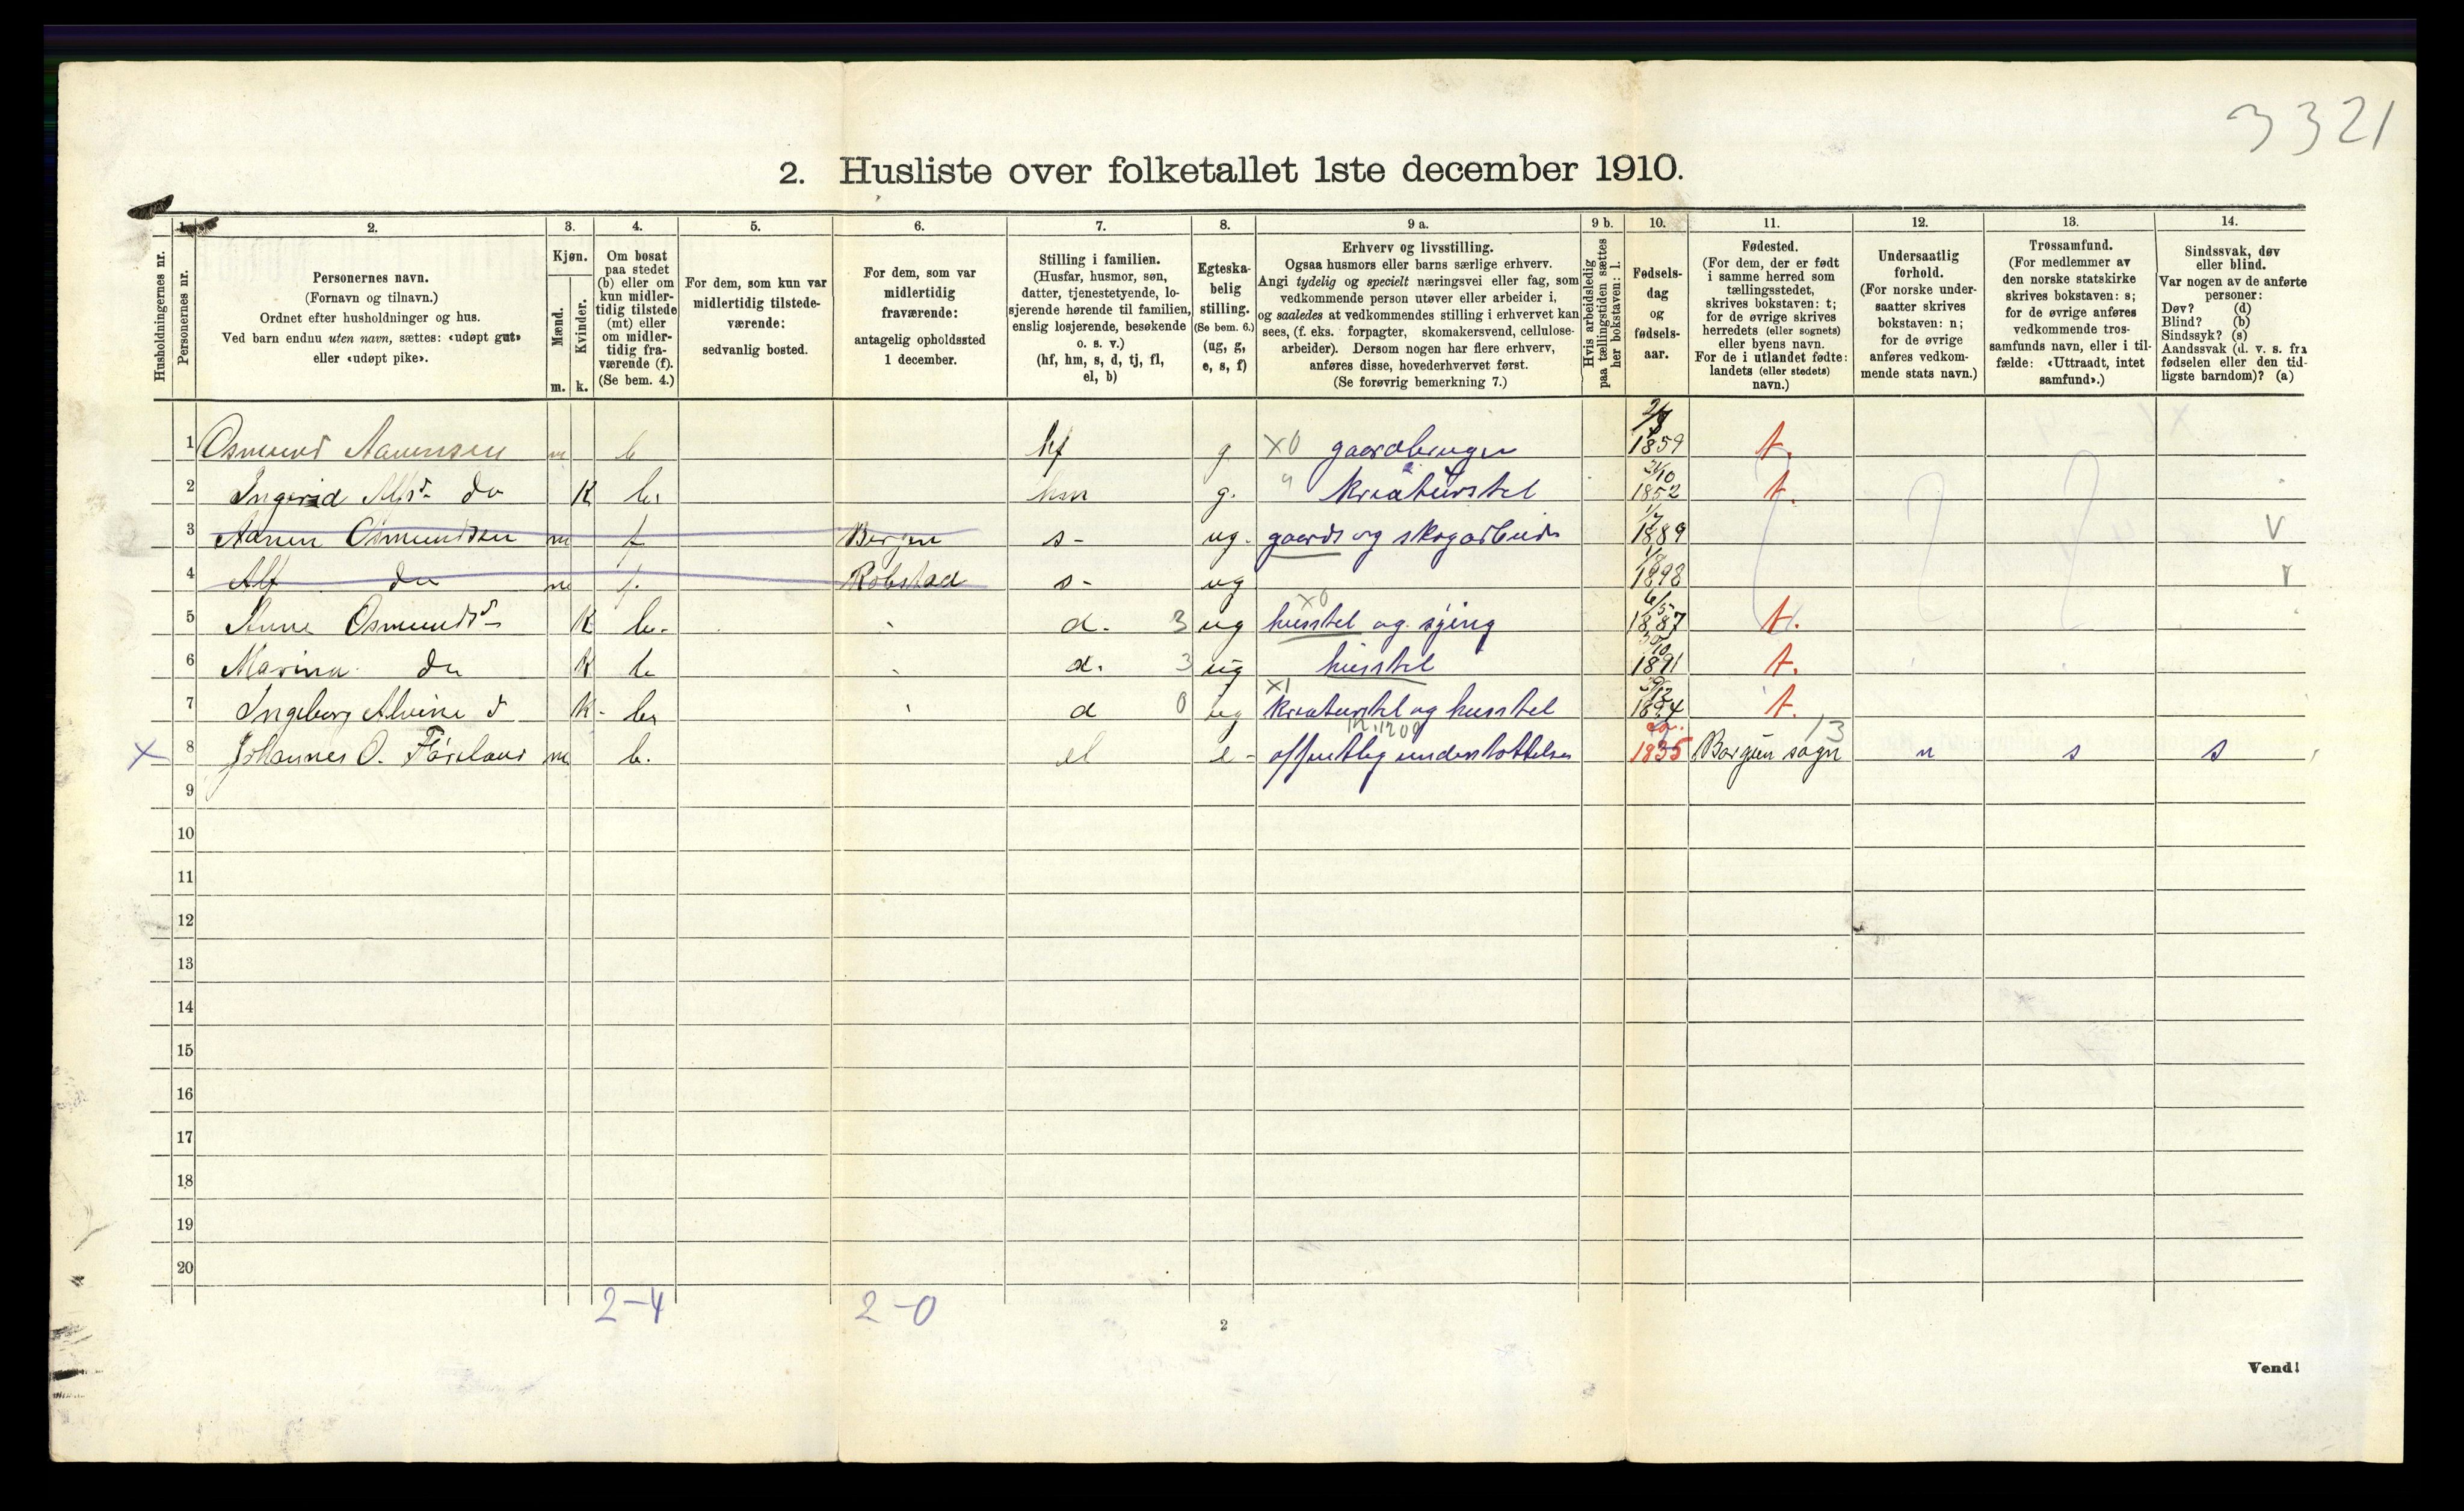 3321
2. Husliste over folketallet 1ste december 1910.
Husholdningernes nr.
1.
Personernes nr.
2.
Personernes navn.
(Fornavn og tilnavn.)
Ordnet efter husholdninger og hus.
Ved barn endnu uten navn, sættes: «udøpt gut»
eller «udøpt pike».
3.
Kjøn.
Mænd.
Kvinder.
m. k.
4.
Om bosat
paa stedet
(b) eller om
kun midler-
tidig tilstede
(mt) eller
om midler-
tidig fra-
værende (f).
(Se bem. 4.)
5.
For dem, som kun var
midlertidig tilstede-
værende:
sedvanlig bosted.
6.
For dem, som var
midlertidig
fraværende:
antagelig opholdssted
1 december.
7.
Stilling i familien.
(Husfar, husmor, søn,
datter, tjenestetyende, lo-
sjerende hørende til familien,
enslig losjerende, besøkende
o. s. v.)
(hf, hm, s, d, tj, fl,
el, b)
8.
Egteska-
belig
stilling.
(Se bem. 6.)
(ug, g,
e, s, f)
9 a.
Erhverv og livsstilling.
Ogsaa husmors eller barns særlige erhverv.
Angi tydelig og specielt næringsvei eller fag, som
vedkommende person utøver eller arbeider i,
og saaledes at vedkommendes stilling i erhvervet kan
sees, (f. eks. forpagter, skomakersvend, cellulose-
arbeider). Dersom nogen har flere erhverv,
anføres disse, hovederhvervet først.
(Se forøvrig bemerkning 7.)
9 b.
Hvis arbeidsledig
paa tællingstiden sættes
her bokstaven: l.
10.
Fødsels-
dag
og
fødsels-
aar.
11.
Fødested.
(For dem, der er født
i samme herred som
tællingsstedet,
skrives bokstaven: t;
for de øvrige skrives
herredets (eller sognets)
eller byens navn.
For de i utlandet fødte:
landets (eller stedets)
navn.)
12.
Undersaatlig
forhold.
(For norske under-
saatter skrives
bokstaven: n;
for de øvrige
anføres vedkom-
mende stats navn.)
13.
Trossamfund.
(For medlemmer av
den norske statskirke
skrives bokstaven: s;
for de øvrige anføres
vedkommende tros-
samfunds navn, eller i til-
fælde: «Uttraadt, intet
samfund».)
14.
Sindssvak, døv
eller blind.
Var nogen av de anførte
personer:
Døv? (d)
Blind? (b)
Sindssyk? (s)
Aandssvak (d. v. s. fra
fødselen eller den tid-
ligste barndom)? (a)
1 Osmund Aanensen m b hf g x0 gaardbruger 1859 t.
2 Ingerid Alfsd do K b hm g. " kreaturstel 1852 t.
3 Aanen Osmundsen m f Bergen s- ug. gaards og skogarbeide 1/7 1889 V
4 Alf do m f. Robstad s- ug 1898 V
5 Anne Osmundsd K b. d. 3 ug x0 husstel og sying 6/5 1887 t.
6 Marina do K b d. 3 ug husstel 30/10 1891 t.
7 Ingeborg Alvine d K- b d 0 ug x1 kreaturstel og husstel 29/12 1894 t.
x 8 Johannes O. m b. el e- offentlig understøttelse 1835 sogn 13 n s s
9
10
11
12
13
14
15
16
17
18
19
20
2-4 2-0
2
Vend!